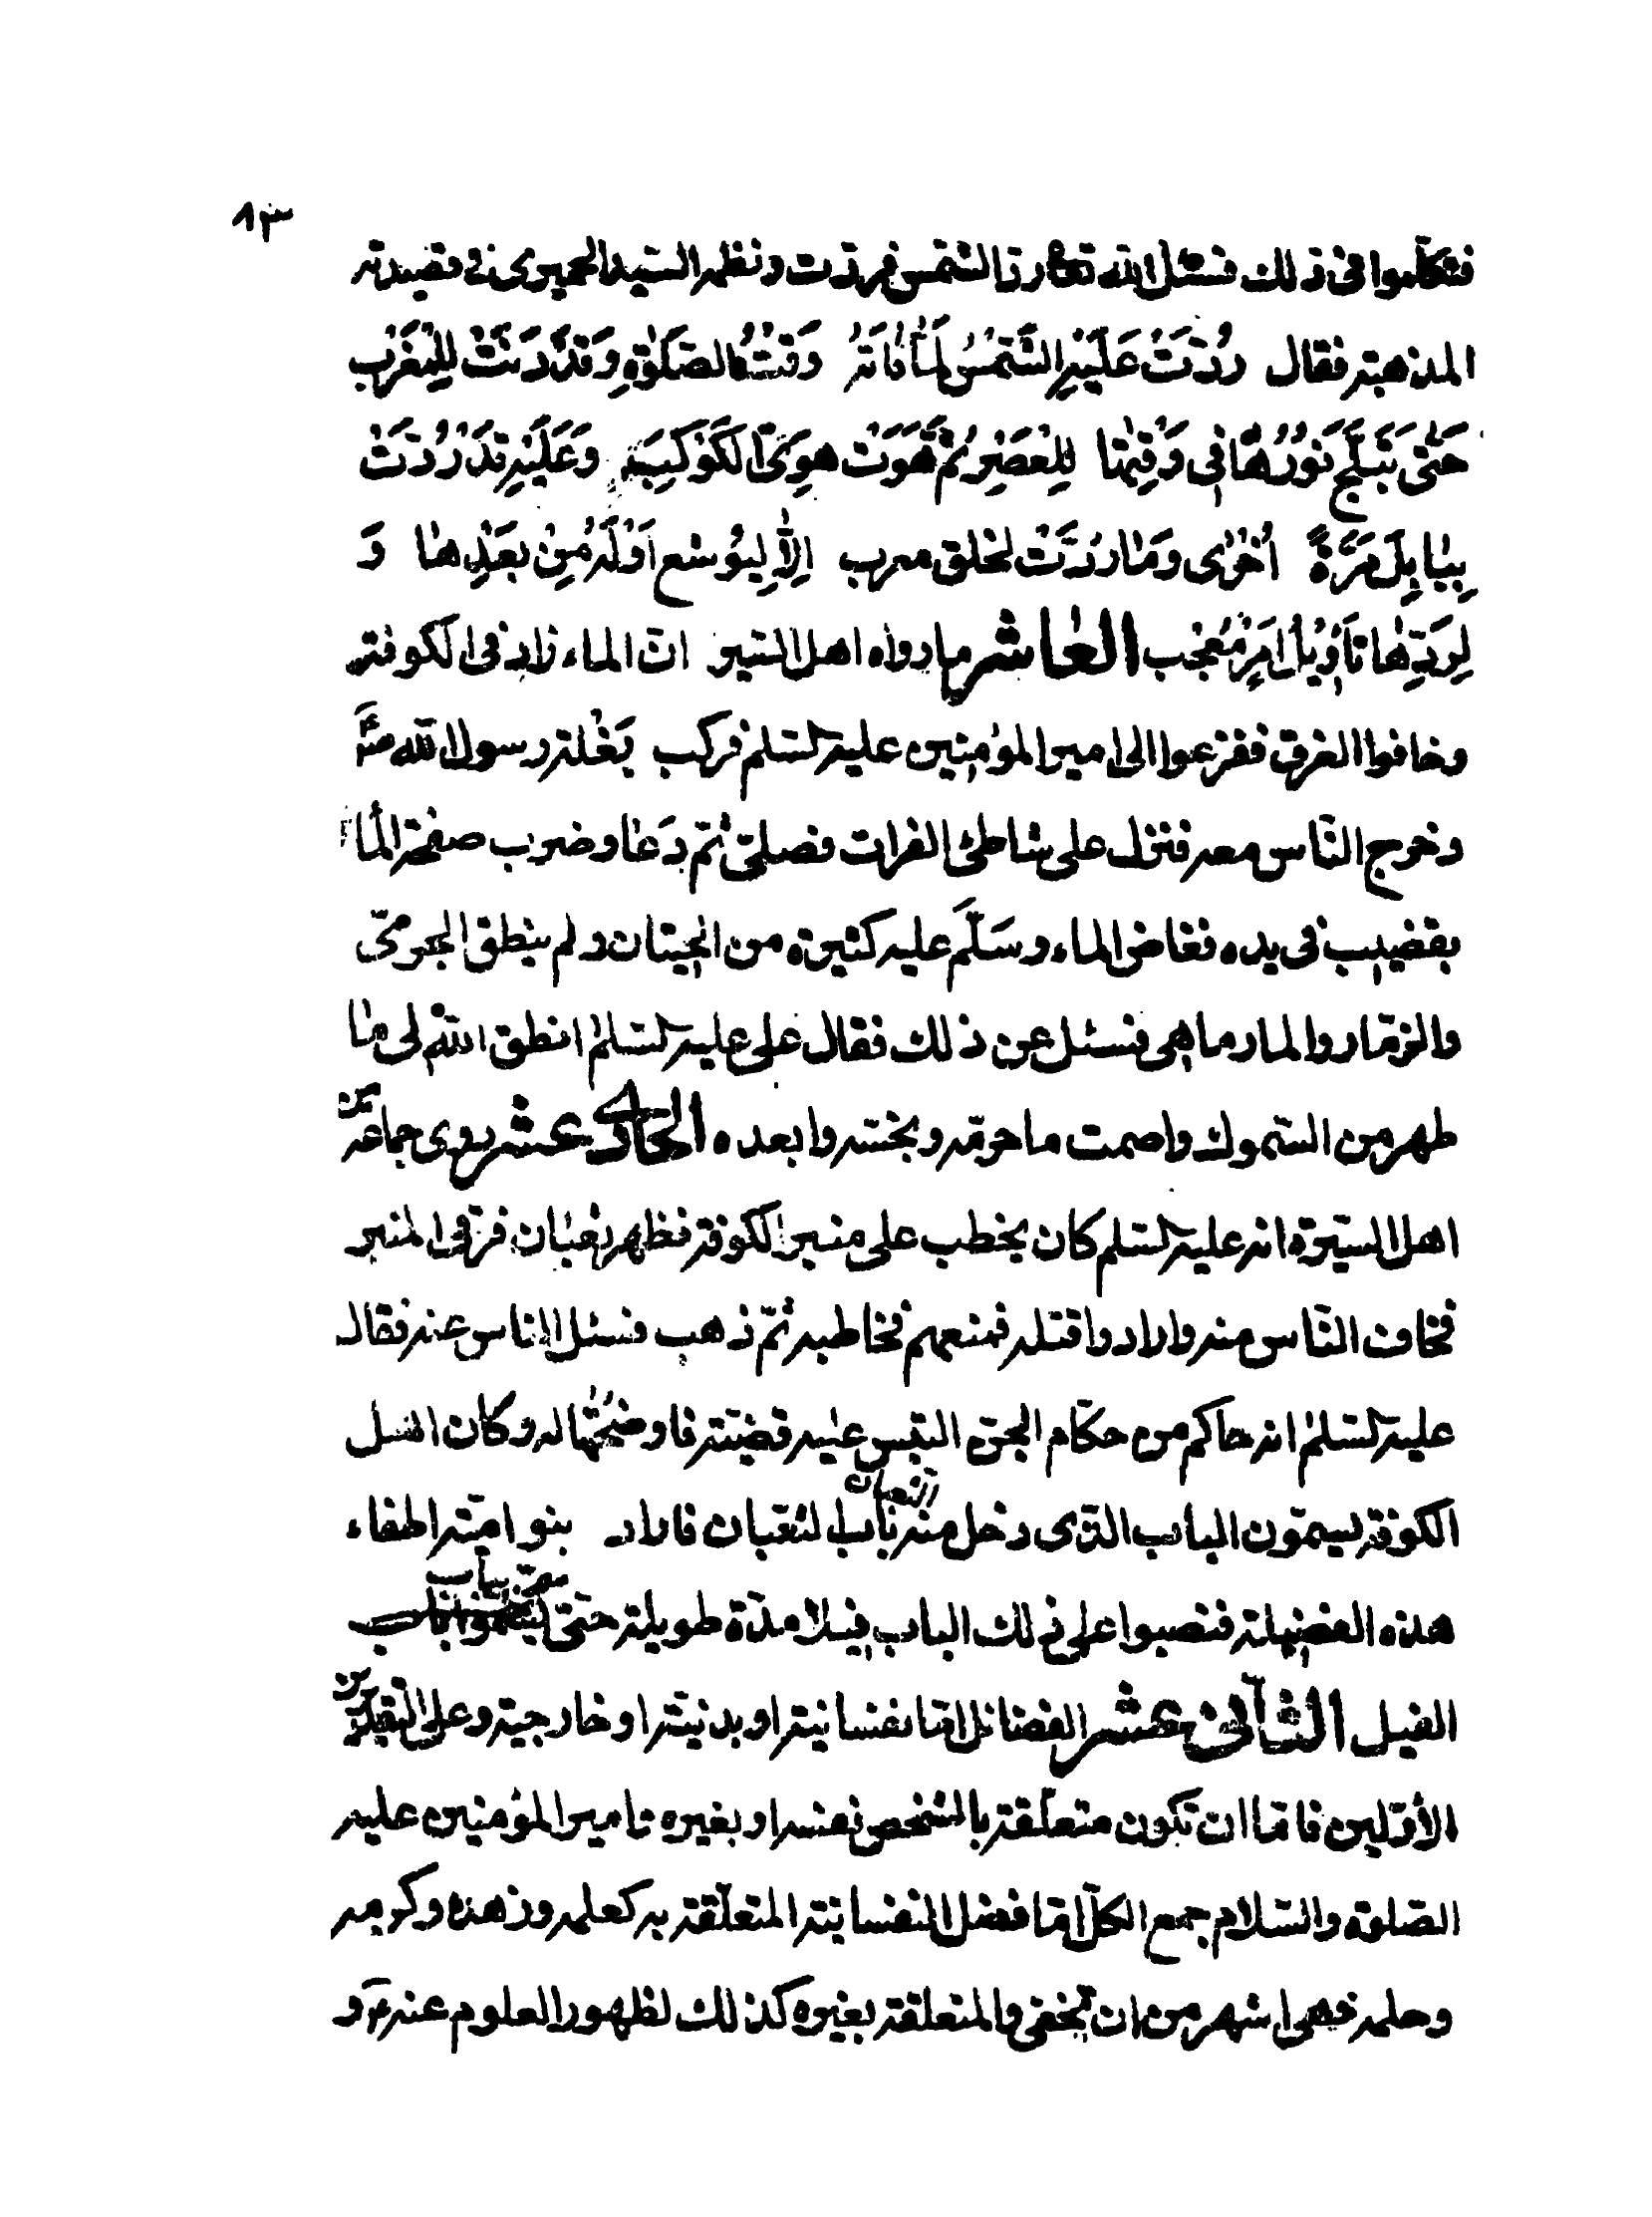 ٨٣
فتكلّموا فى ذلك فسئل الله تع ردّ الشّمس فردّت ونظمه السّيد الحميرى فى قصيدته
المذهبة فقال رُدَّتْ عَلَيْهِ الشَّمْسُ لَمّٰا فٰاتَهُ وَقْتُ الصَّلوٰةِ وَقَدْ دَنَتْ لِلْمَغْرَبِ
حَتّٰى تَبَلَّجَ نُورُهٰا فِى وَقْتِهٰا لِلْعَصْرِ ثُمَّ هَوَتْ هوِىَّ الكَوْكَبِ وَعَلَيْهِ قَدْ رُدَّتْ
بِبٰابِلَ مَرَّةً اُخْرٰى وَمٰا رُدَّتْ لخلق معرب اِلّاٰ لِيُوشع اَوْ لَهُ مِنْ بعَدِها وَ
لِرَدِّهٰا تَأوِيلُ اَمْرٍ مُعْجِب العاشر ما رواه اهل السّير انّ الماء زاد فى الكوفة
وخافوا الغرق ففزعوا الى امير المؤمنين عليه السّلم فركب بَغْلة رسول الله ص
وخرج النّاس معه فنزل على شاطئ الفرات فصلّى ثمّ دَعا وضرب صفحة الماء
بقضيب فى يده فغاض الماء وسَلَّم عليه كثيرة من الحيتان ولم ينطق الجرىّ
والزمّار والمارماهى فسئل عن ذلك فقال على عليه السّلم انطق الله لى ما
طهر من السّموك واصمت ما حرّمه ونجّسه وابعده الحادى عشر روى جماعة من
اهل السّيرة انه عليه السّلم كان يخطب على منبر الكوفة فظهر ثعبان فرقى المنبر
فخاف النّاس منه وارادوا قتله فمنعهم فخاطبه ثمّ ذهب فسئل الناس عنه فقال
عليه السّلم انه حاكم من حكّام الجنّ التبس عليه قضيّة فاوضحتها له وكان اهل
الكوفة يسمّون الباب الّذى دخل منه باب الثعبان فاراد بنو اميّة اطفاء
هذه الفضيلة فنصبوا على ذلك الباب فيلا مدّة طويلة حتّى سمّى بباب
الفيل الثّانى عشر الفضائل امّا نفسانيّة او بدنيّة او خارجية وعلى التقديرين
الأوّلين فامّا ان تكون متعلّقة بالشخص نفسه او بغيره وامير المؤمنين عليه
الصّلوة والسّلام جمع الكلّ امّا فضل النفسانيّة المتعلّقة به كعلمه وزهده وكرمه
وحلمه فهى اشهر من ان تخفى والمتعلقة بغيره كذلك لظهور العلوم عنه و